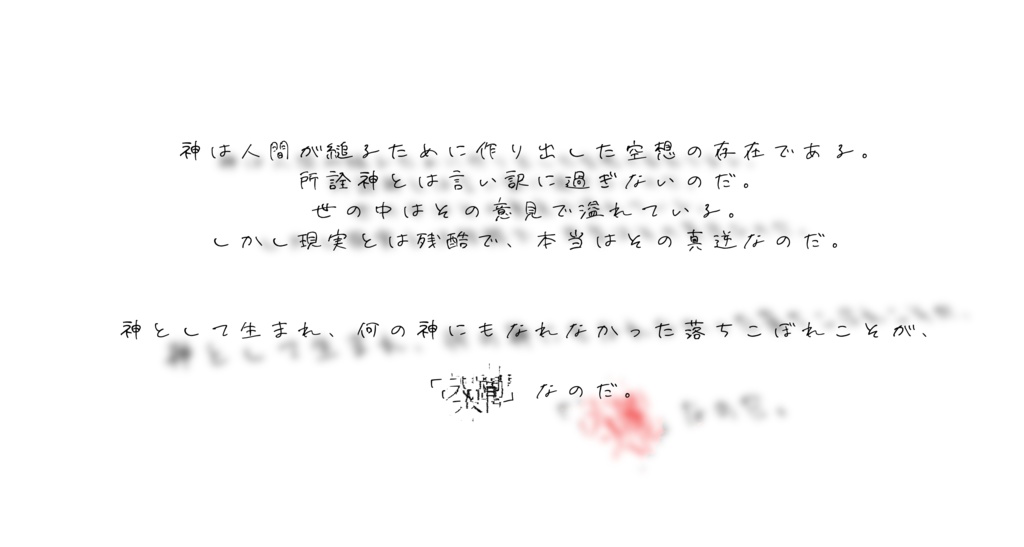 神は人間が縋るために作り出した空想の存在である。
所詮神とは言い訳に過ぎないのだ。
世の中はその意見で溢れている。
しかし現実とは残酷で、本当はその真逆なのだ。
神として生まれ、何の神にもなれなかった落ちこぼれこそが、
「人間」なのだ。